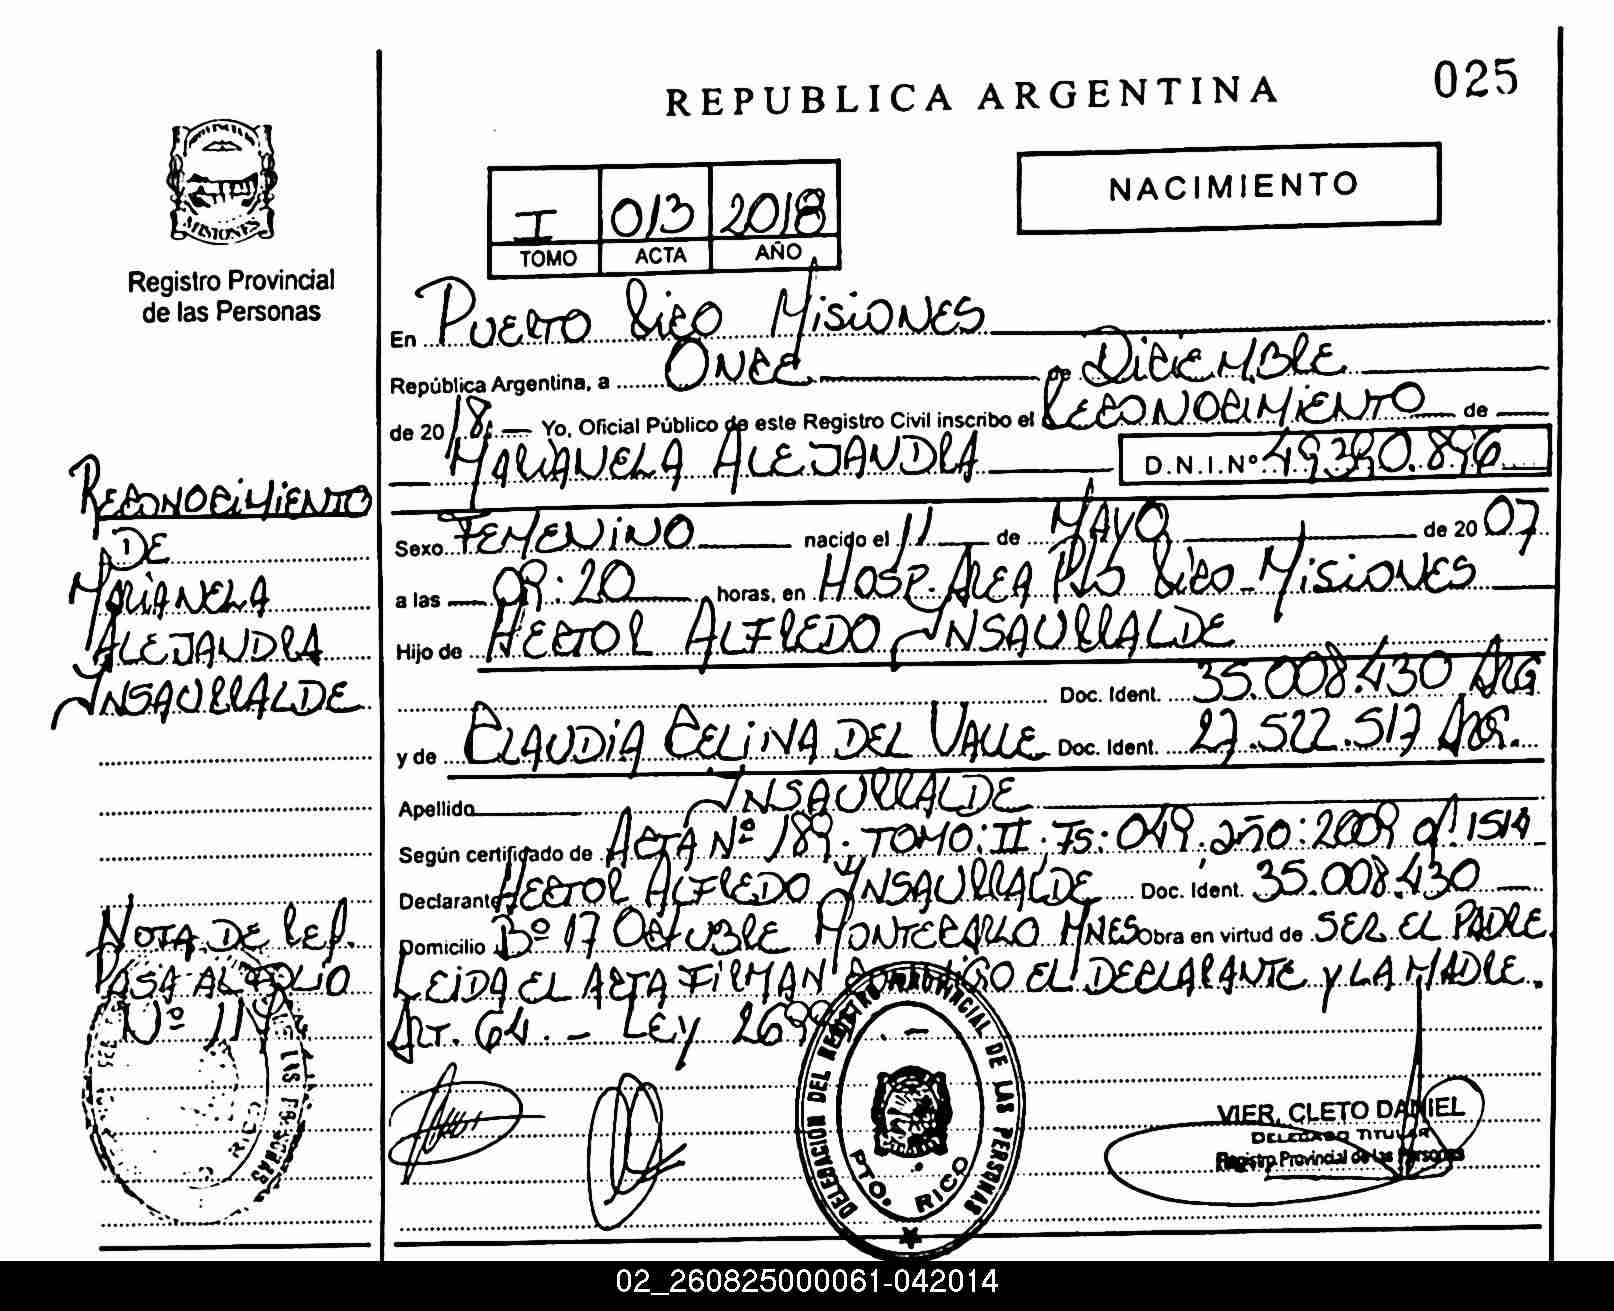 REPUBLICA ARGENTINA
025
MISIONES
Registro Provincial
de las Personas
I 013 2018
TOMO ACTA AÑO
NACIMIENTO
En PUERTO RICO MISIONES
República Argentina, a ONCE de DICIEMBRE
de 2018. Yo, Oficial Público de este Registro Civil inscribo el RECONOCIMIENTO de
MARIANELA ALEJANDRA D.N.I.Nº 49.390.896
Sexo FEMENINO nacido el 11 de MAYO de 2007
a las 09:20 horas, en HOSP. AREA PTO RICO - MISIONES
Hijo de HECTOR ALFREDO INSAURRALDE
Doc. Ident. 35.008.430 ARG
y de CLAUDIA CELINA DEL VALLE Doc. Ident. 27.522.517 ARG.
Apellido INSAURRALDE
Según certificado de ACTA Nº 189. TOMO: II. Fs: 049. año: 2009
Declarante HECTOR ALFREDO INSAURRALDE Doc. Ident. 35.008.430
Domicilio Bº 17 OCTUBRE MONTECARLO MNES Obra en virtud de SER EL PADRE.
LEIDA EL ACTA FIRMAN CONMIGO EL DECLARANTE Y LA MADRE.
ART. 64. - LEY
RECONOCIMIENTO
DE
MARIANELA
ALEJANDRA
INSAURRALDE
NOTA DE REF.
PASA AL FOLIO
Nº 119
DELEGACION DEL REGISTRO PROVINCIAL DE LAS PERSONAS
PTO. RICO
VIER, CLETO DANIEL
DELEGADO TITULAR
Registro Provincial de las Personas
02_260825000061-042014